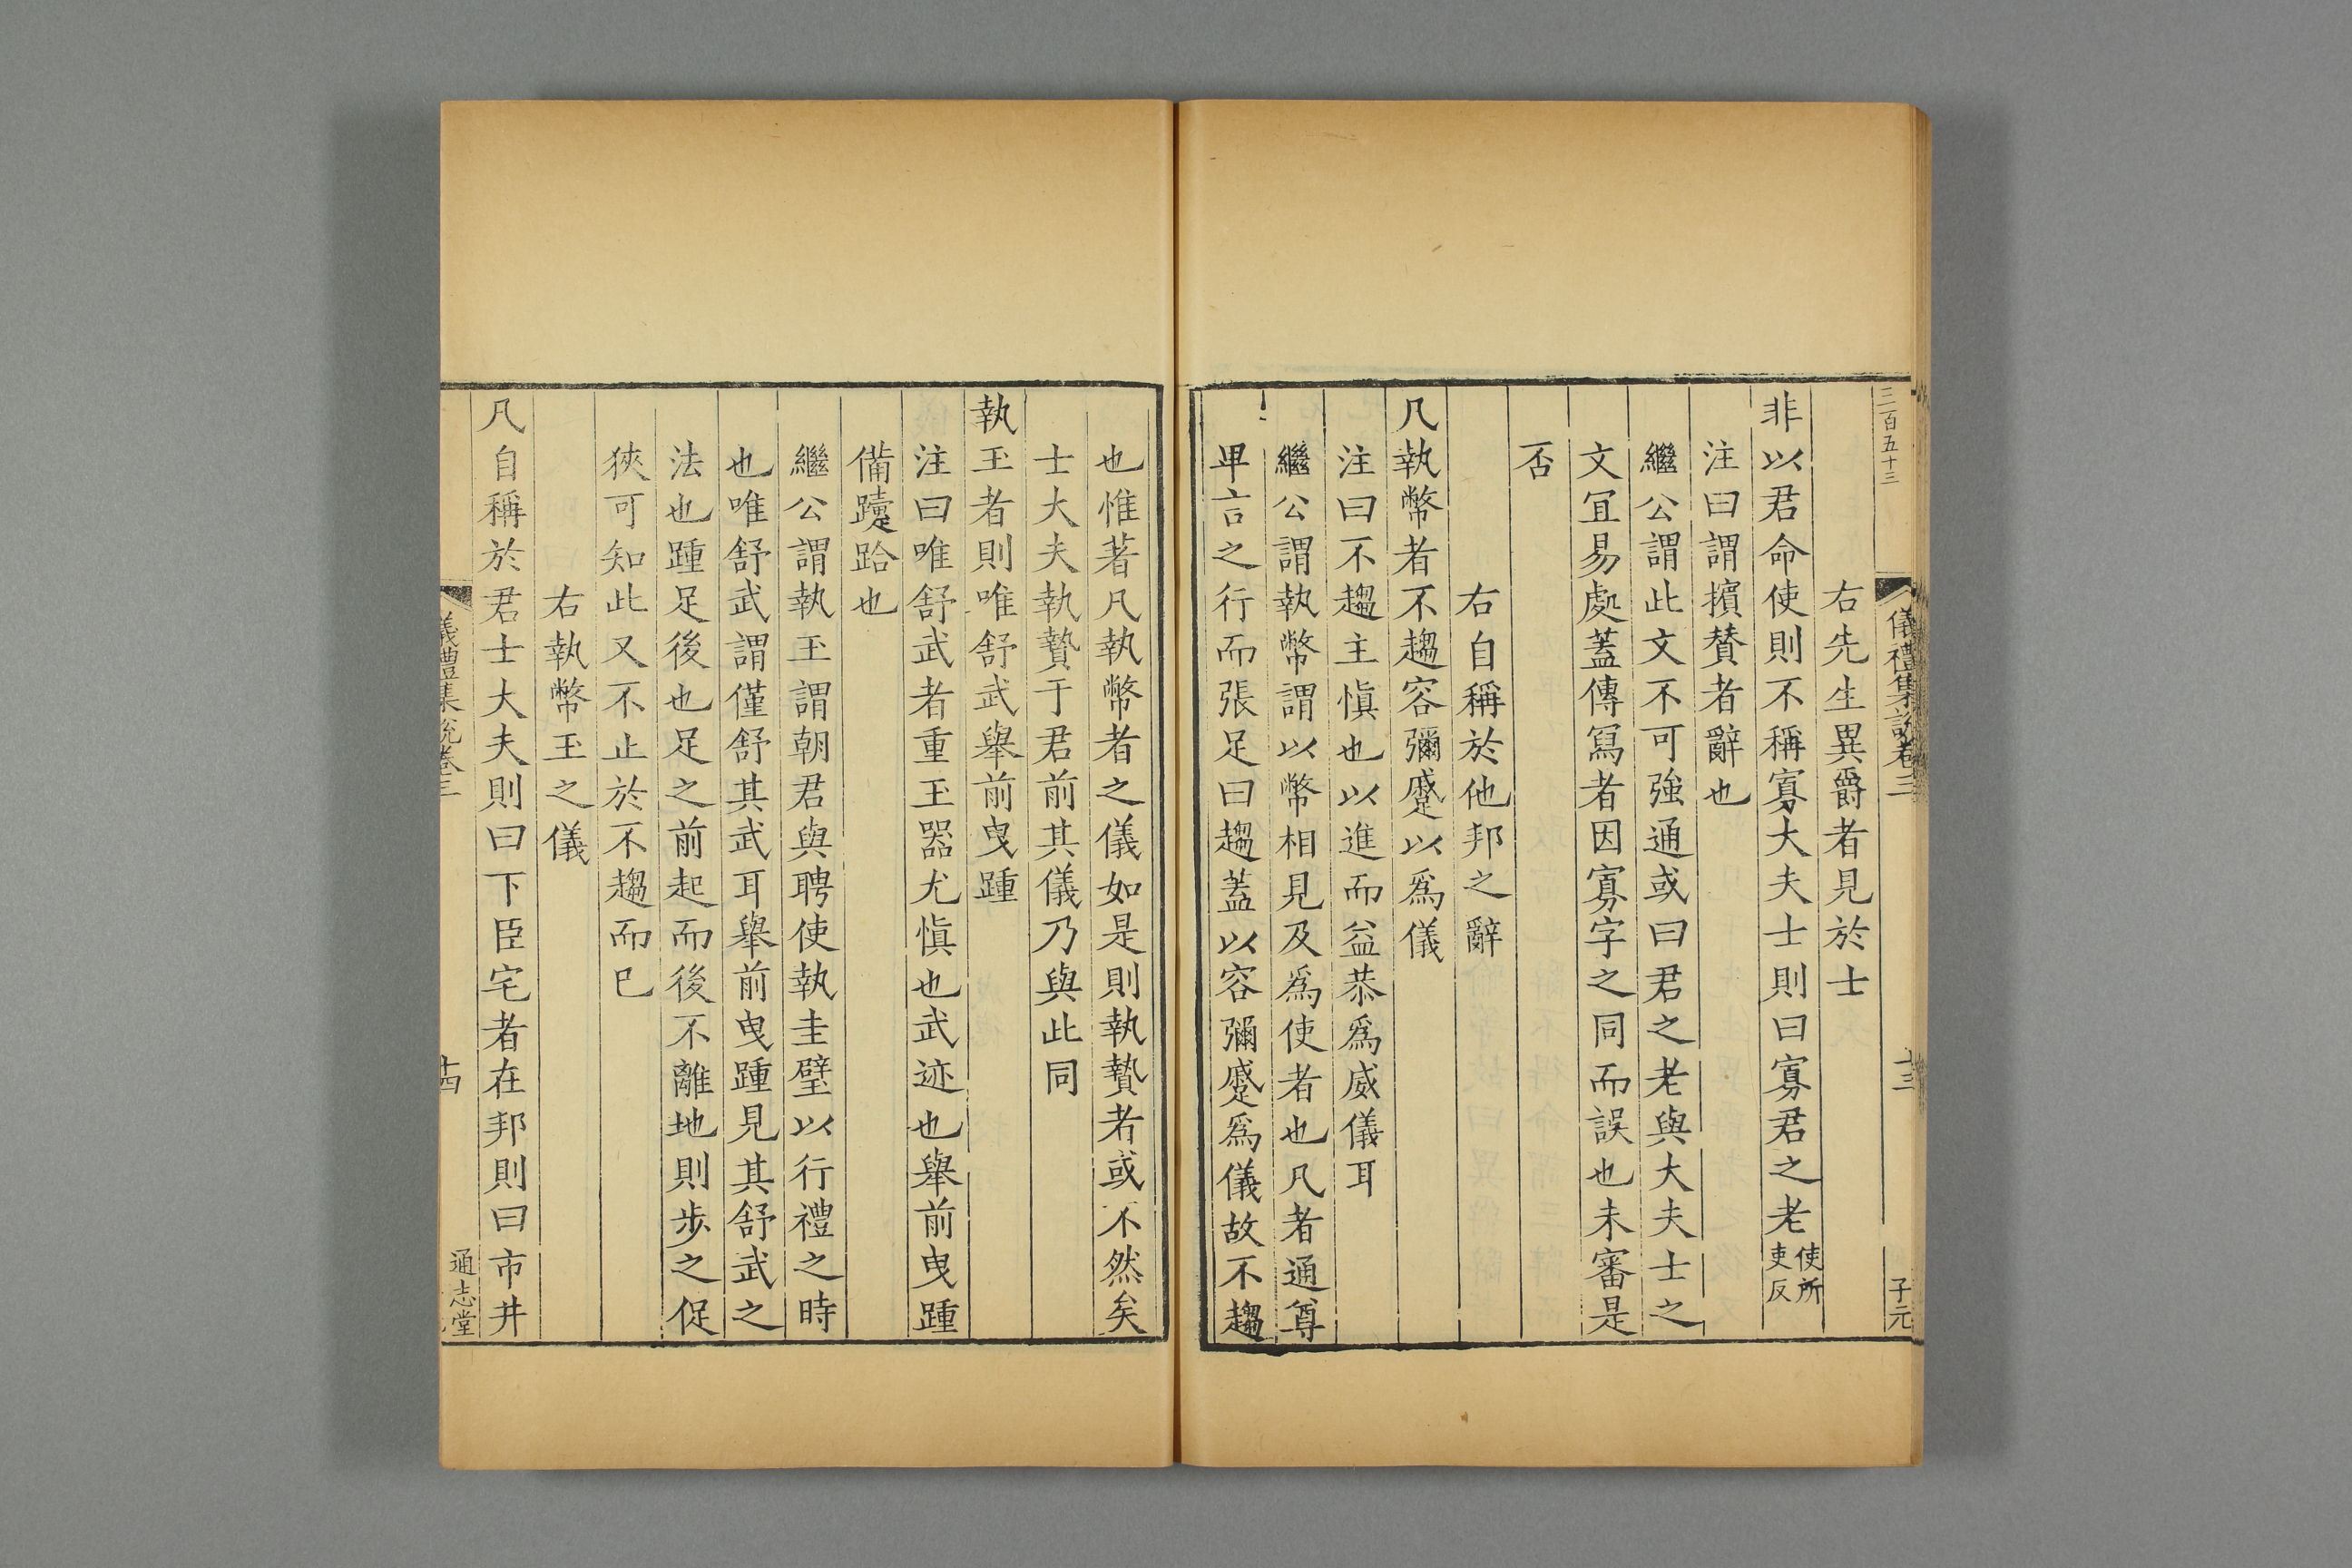 三百五十三
儀禮集說卷三
十三
子元
右先生異爵者見於士
非以君命使則不稱寡大夫士則曰寡君之老使所吏反
注曰謂擯贊者辭也
繼公謂此文不可強通或曰君之老與大夫士之
文宜易處蓋傳寫者因寡字之同而誤也未審是
否
右自稱於他邦之辭
凡執幣者不趨容彌蹙以爲儀
注曰不趨主慎也以進而益恭爲威儀耳
繼公謂執幣謂以幣相見及爲使者也凡者通尊
卑言之行而張足曰趨蓋以容彌蹙爲儀故不趨
也惟著凡執幣者之儀如是則執贄者或不然矣
士大夫執贄于君前其儀乃與此同
執玉者則唯舒武舉前曳踵
注曰唯舒武者重玉器尤慎也武迹也舉前曳踵
備躓跲也
繼公謂執玉謂朝君與聘使執圭璧以行禮之時
也唯舒武謂僅舒其武耳舉前曳踵見其舒武之
法也踵足後也足之前起而後不離地則步之促
狹可知此又不止於不趨而已
右執幣玉之儀
凡自稱於君士大夫則曰下臣宅者在邦則曰市井
儀禮集說卷三
十四
通志堂